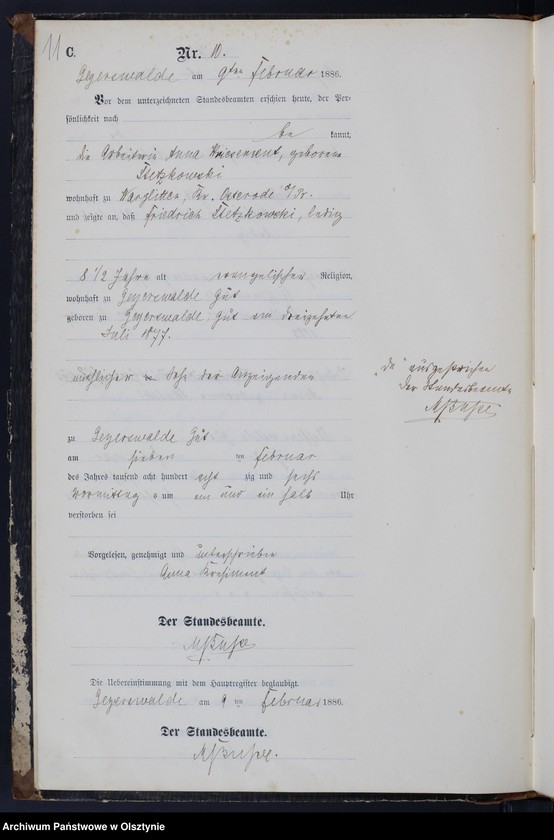 11
C.
Nr. 10.
Geyerswalde am 9ten Februar 1886.
Vor dem unterzeichneten Standesbeamten erschien heute, der Per-
sönlichkeit nach
be kannt,
die Arbeiterin Anna geborene
Stetzkowski
wohnhaft zu Warglitten, Kr. Osterode o/Pr.
und zeigte an, daß Friedrich Stetzkowski, ledig
8 1/2 Jahre alt evangelischer Religion,
wohnhaft zu Geyerswalde Gut
geboren zu Geyerswalde Gut am dreizehnten
Juli 1877.
unehlicher Sohn der Anzeigenden
zu Geyerswalde Gut
am sieben ten Februar
des Jahres tausend acht hundert acht zig und sechs
Vormittag s um ein und ein halb Uhr
verstorben sei
Vorgelesen, genehmigt und unterschrieben
Anna
Der Standesbeamte.
Die Uebereinstimmung mit dem Hauptregister beglaubigt.
Geyerswalde am 9 ten Februar 1886.
Der Standesbeamte.
"de" ausgestrichen
Der Standesbeamte
Archiwum Państwowe w Olsztynie